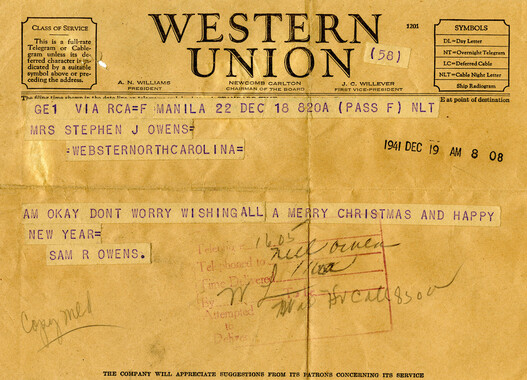 CLASS OF SERVICE
This is a full-rate
Telegram or Cable-
gram unless its de-
ferred character is in-
dicated by a suitable
symbol above or pre-
ceding the address.
WESTERN
UNION
(58)
1201
SYMBOLS
DL=Day Letter
NT=Overnight Telegram
LC=Deferred Cable
NLT=Cable Night Letter
Ship Radiogram
A. N. WILLIAMS
PRESIDENT
NEWCOMB CARLTON
CHAIRMAN OF THE BOARD
J. C. WILLEVER
FIRST VICE-PRESIDENT
E at point of destination
GE1 VIA RCA=F MANILA 22 DEC 18 820A (PASS F) NLT
MRS STEPHEN J OWENS=
=WEBSTERNORTHCAROLINA=
1941 DEC 19 AM 8 08
AM OKAY DONT WORRY WISHINGALL A MERRY CHRISTMAS AND HAPPY
NEW YEAR=
SAM R OWENS.
Telephoned to
Time
By
Attempted
to
Deliver
1605
Owen
Copy mld
THE COMPANY WILL APPRECIATE SUGGESTIONS FROM ITS PATRONS CONCERNING ITS SERVICE